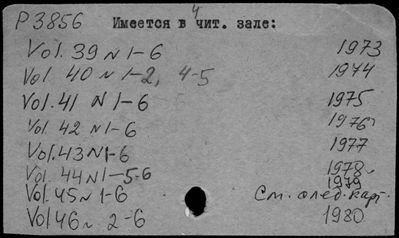 P3856 Имеется в 4 чит. зале:
Vol. 39 N 1-6 1973
Vol. 40 N 1-2, 4-5 1974
Vol. 41 N 1-6 1975
Vol. 42 N 1-6 1976
Vol. 43 N 1-6 1977
Vol. 44 N 1-5-6 1978
Vol. 45 N 1-6 1979
См. след. карт.
Vol 46 N 2-6 1980